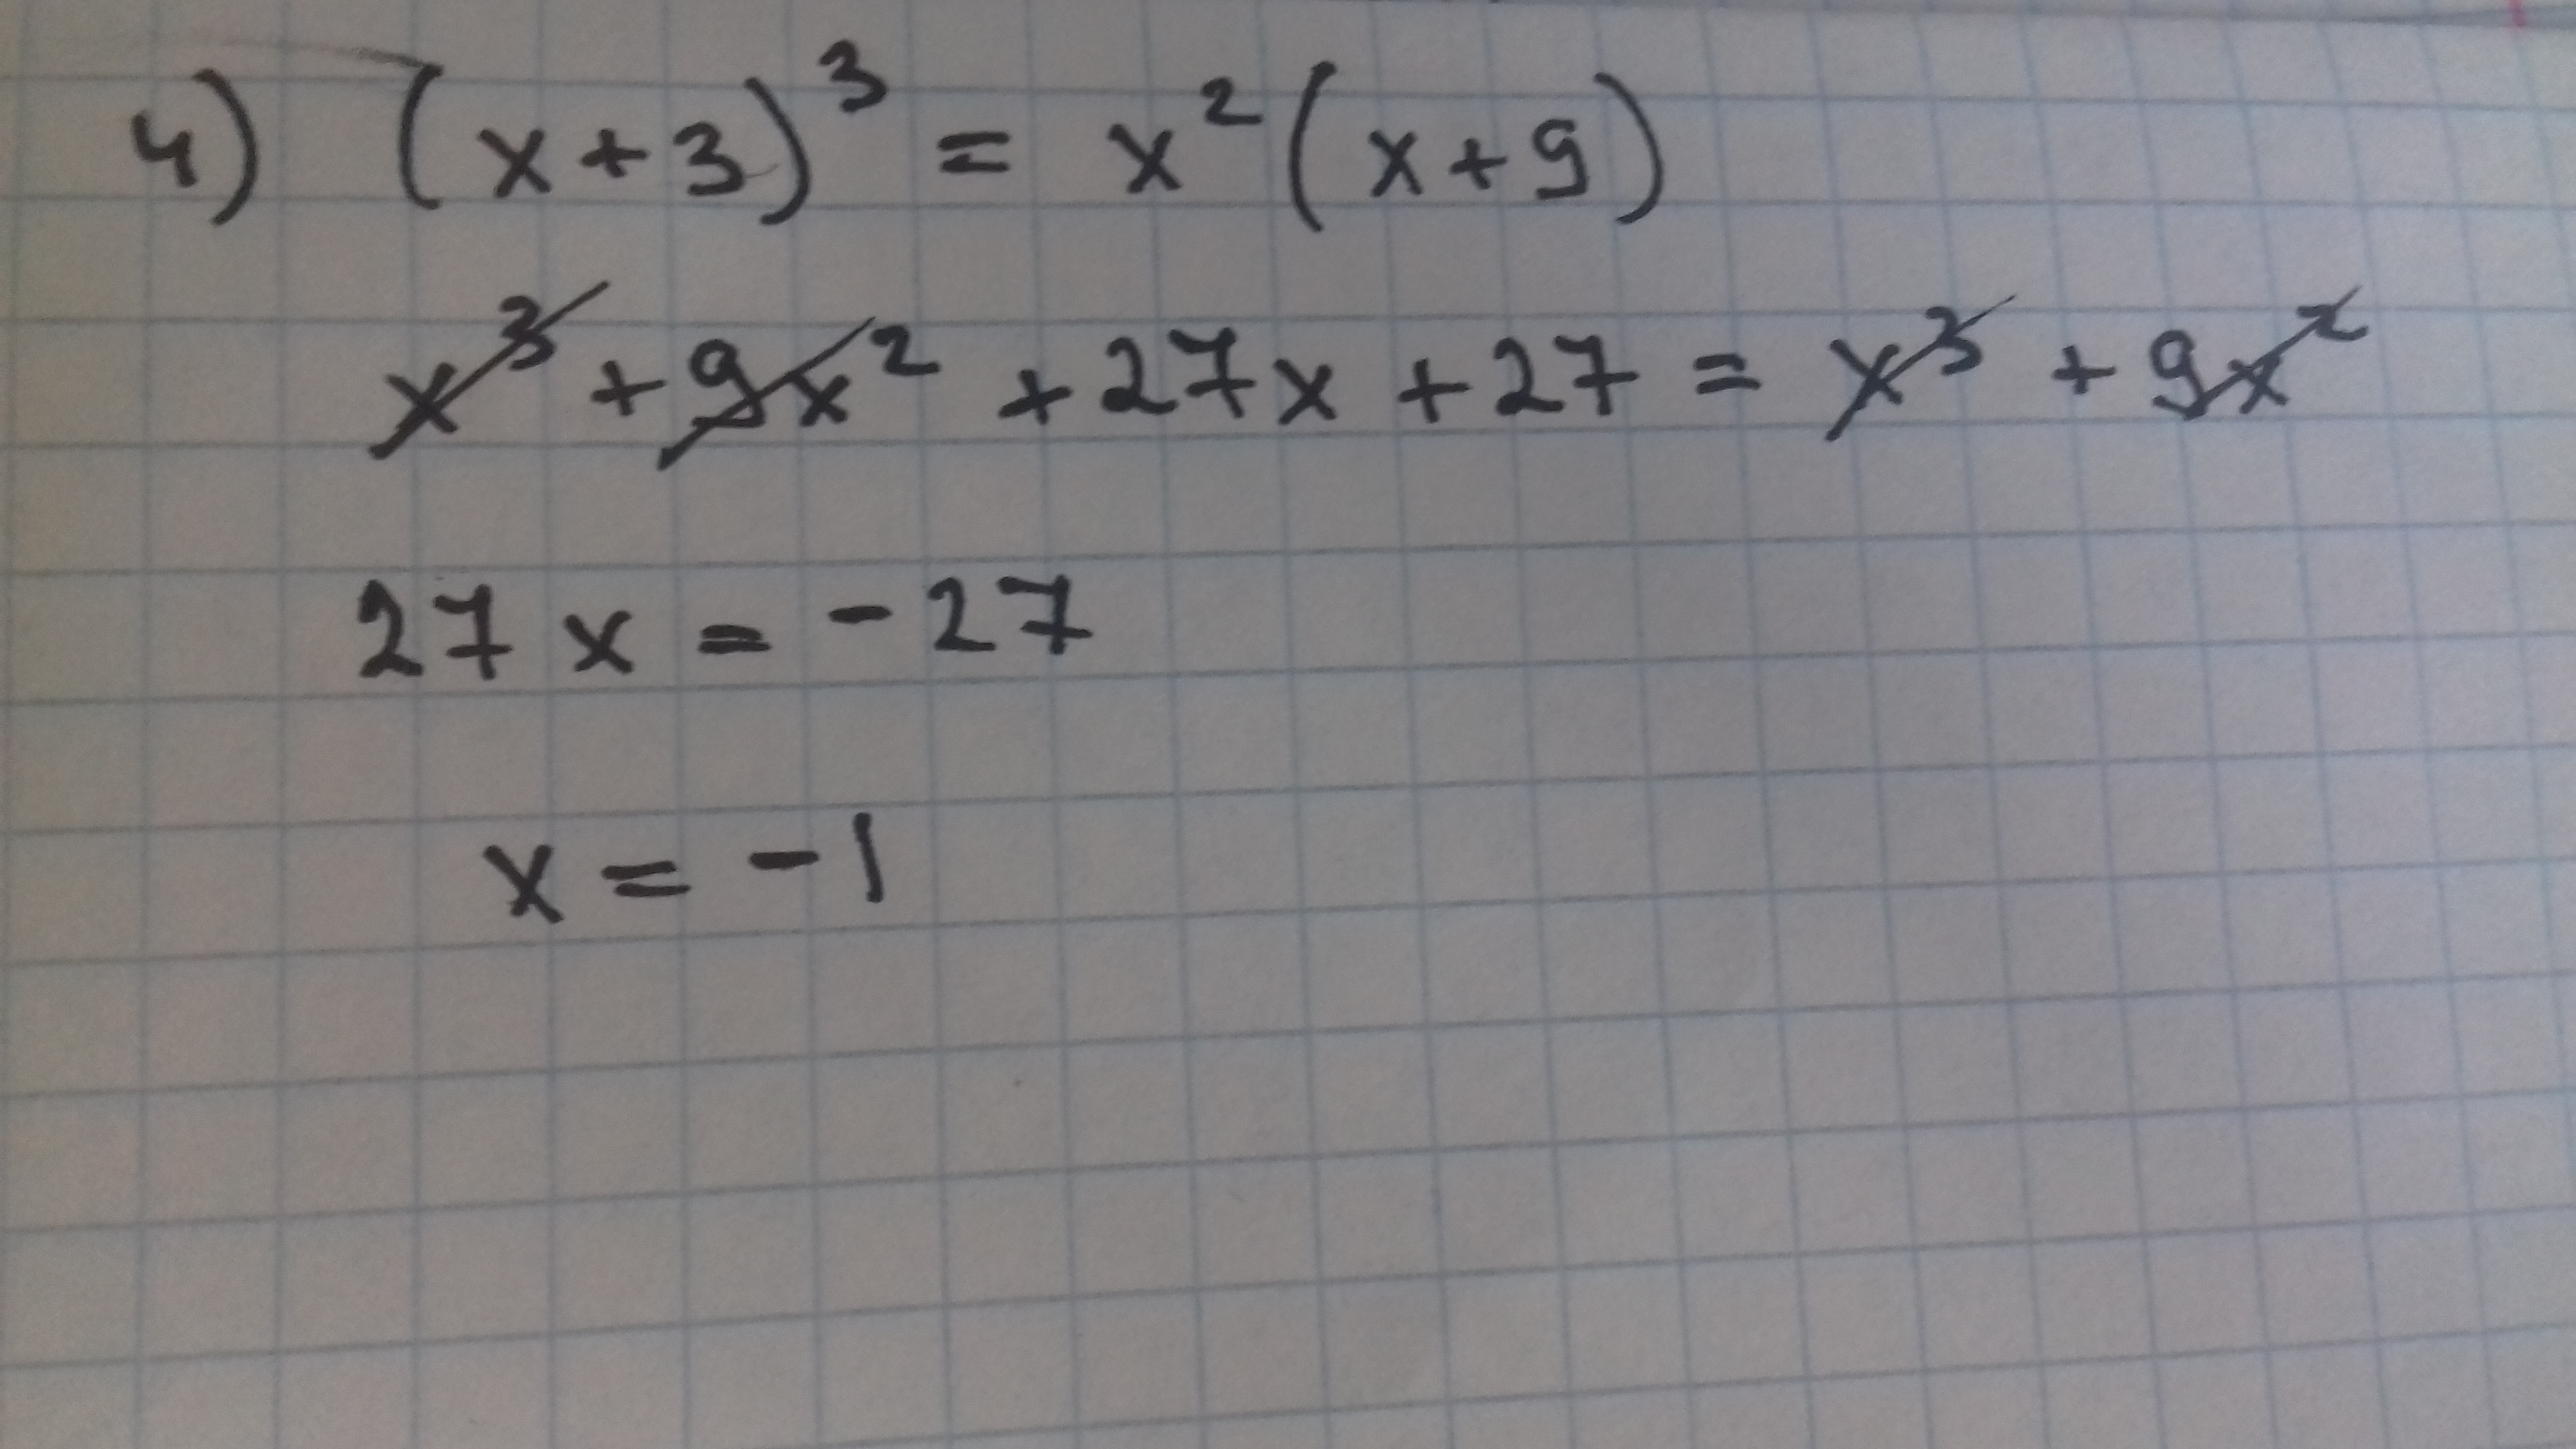 4) (x+3)³ = x²(x+9)
x³ + 9x² + 27x + 27 = x³ + 9x²
27x = -27
x = -1